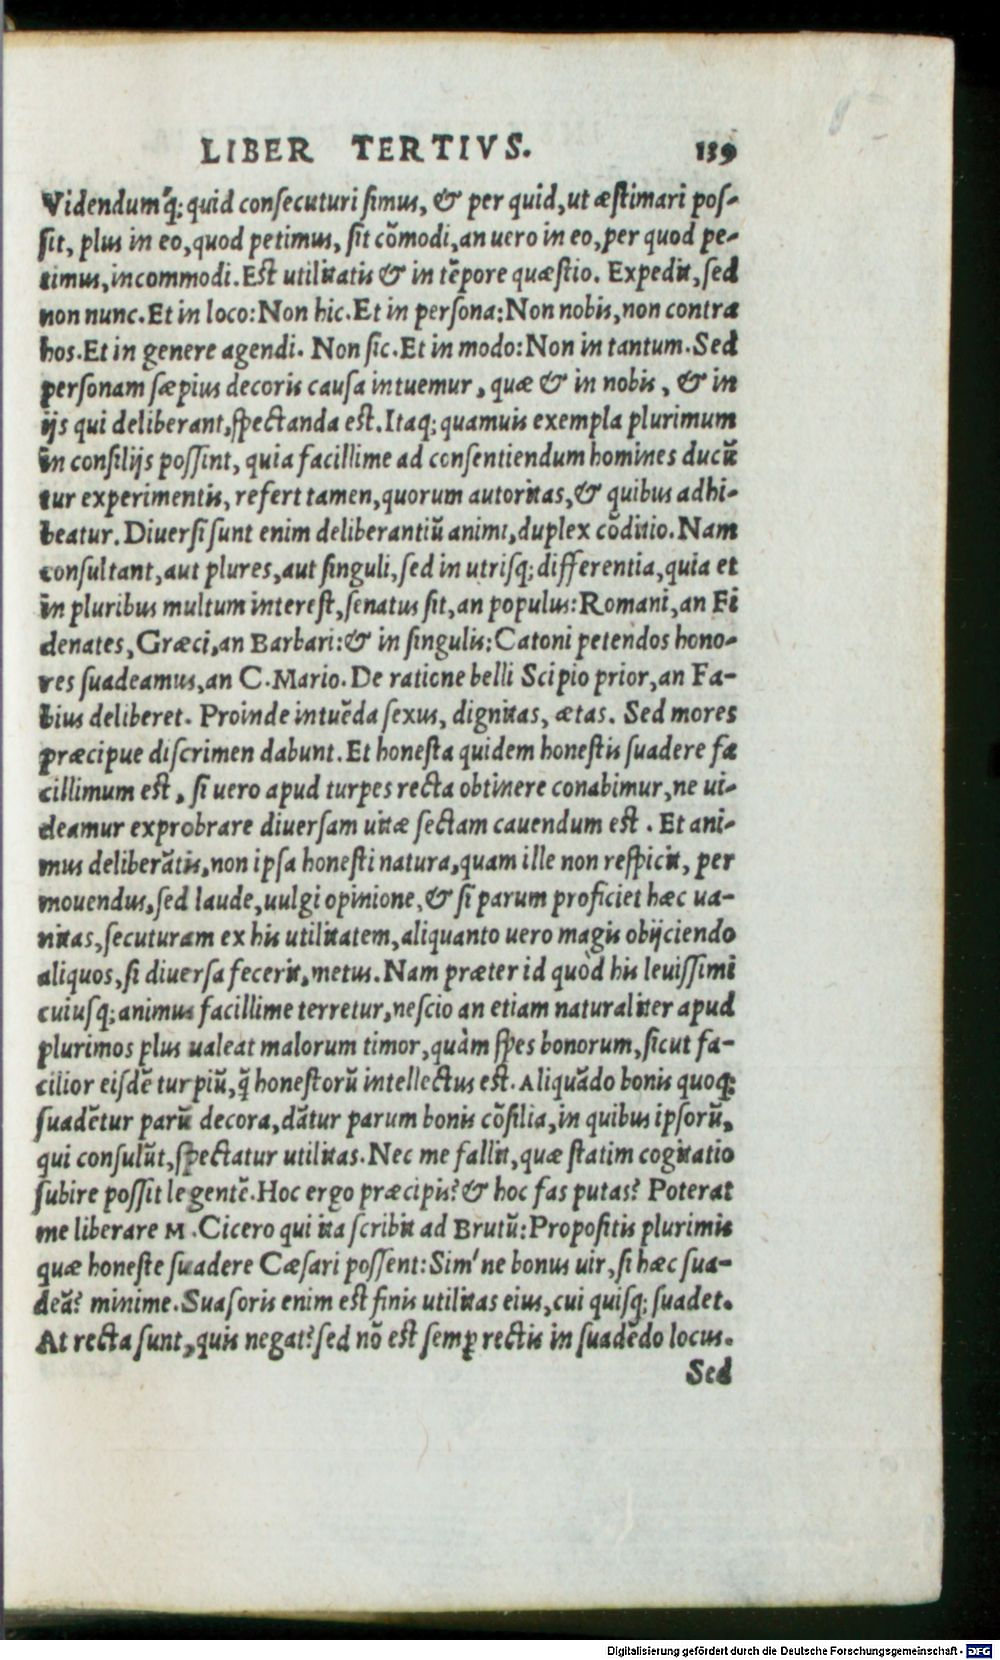 LIBER TERTIVS. 139
Videndum'q́; quid consecuturi simus, & per quid, ut æstimari pos-
sit, plus in eo, quod petimus, sit cõmodi, an uero in eo, per quod pe-
timus, incommodi. Est utilitatis & in tẽpore quæstio. Expedit, sed
non nunc. Et in loco: Non hic. Et in persona: Non nobis, non contra
hos. Et in genere agendi. Non sic. Et in modo: Non in tantum. Sed
personam sæpius decoris causa intuemur, quæ & in nobis, & in
ijs qui deliberant, spectanda est. Itaq; quamuis exempla plurimum
in consilijs possint, quia facillime ad consentiendum homines ducũ
tur experimentis, refert tamen, quorum autoritas, & quibus adhi-
beatur. Diuersi sunt enim deliberantiũ animi, duplex cõditio. Nam
consultant, aut plures, aut singuli, sed in utrisq; differentia, quia et
in pluribus multum interest, senatus sit, an populus: Romani, an Fi
denates, Græci, an Barbari: & in singulis: Catoni petendos hono-
res suadeamus, an C. Mario. De ratione belli Scipio prior, an Fa-
bius deliberet. Proinde intuẽda sexus, dignitas, ætas. Sed mores
præcipue discrimen dabunt. Et honesta quidem honestis suadere fa
cillimum est, si uero apud turpes recta obtinere conabimur, ne ui-
deamur exprobrare diuersam uitæ sectam cauendum est. Et ani-
mus deliberãtis, non ipsa honesti natura, quam ille non respicit, per
mouendus, sed laude, uulgi opinione, & si parum proficiet hæc ua-
nitas, secuturam ex his utilitatem, aliquanto uero magis obijciendo
aliquos, si diuersa fecerit, metus. Nam præter id quòd his leuissimi
cuiusq; animus facillime terretur, nescio an etiam naturaliter apud
plurimos plus ualeat malorum timor, quàm spes bonorum, sicut fa-
cilior eisdẽ turpiũ, q̃ honestorũ intellectus est. Aliquãdo bonis quoq;
suadẽtur parũ decora, dãtur parum bonis cõsilia, in quibus ipsorũ,
qui consulũt, spectatur utilitas. Nec me fallit, quæ statim cogitatio
subire possit legentẽ. Hoc ergo præcipis? & hoc fas putas? Poterat
me liberare M. Cicero qui ita scribit ad Brutũ: Propositis plurimis
quæ honeste suadere Cæsari possent: Sim' ne bonus uir, si hæc sua-
deã? minime. Suasoris enim est finis utilitas eius, cui quisq; suadet.
At recta sunt, quis negat? sed nõ est semp̱ rectis in suadẽdo locus.
Sed
Digitalisierung gefördert durch die Deutsche Forschungsgemeinschaft - DFG